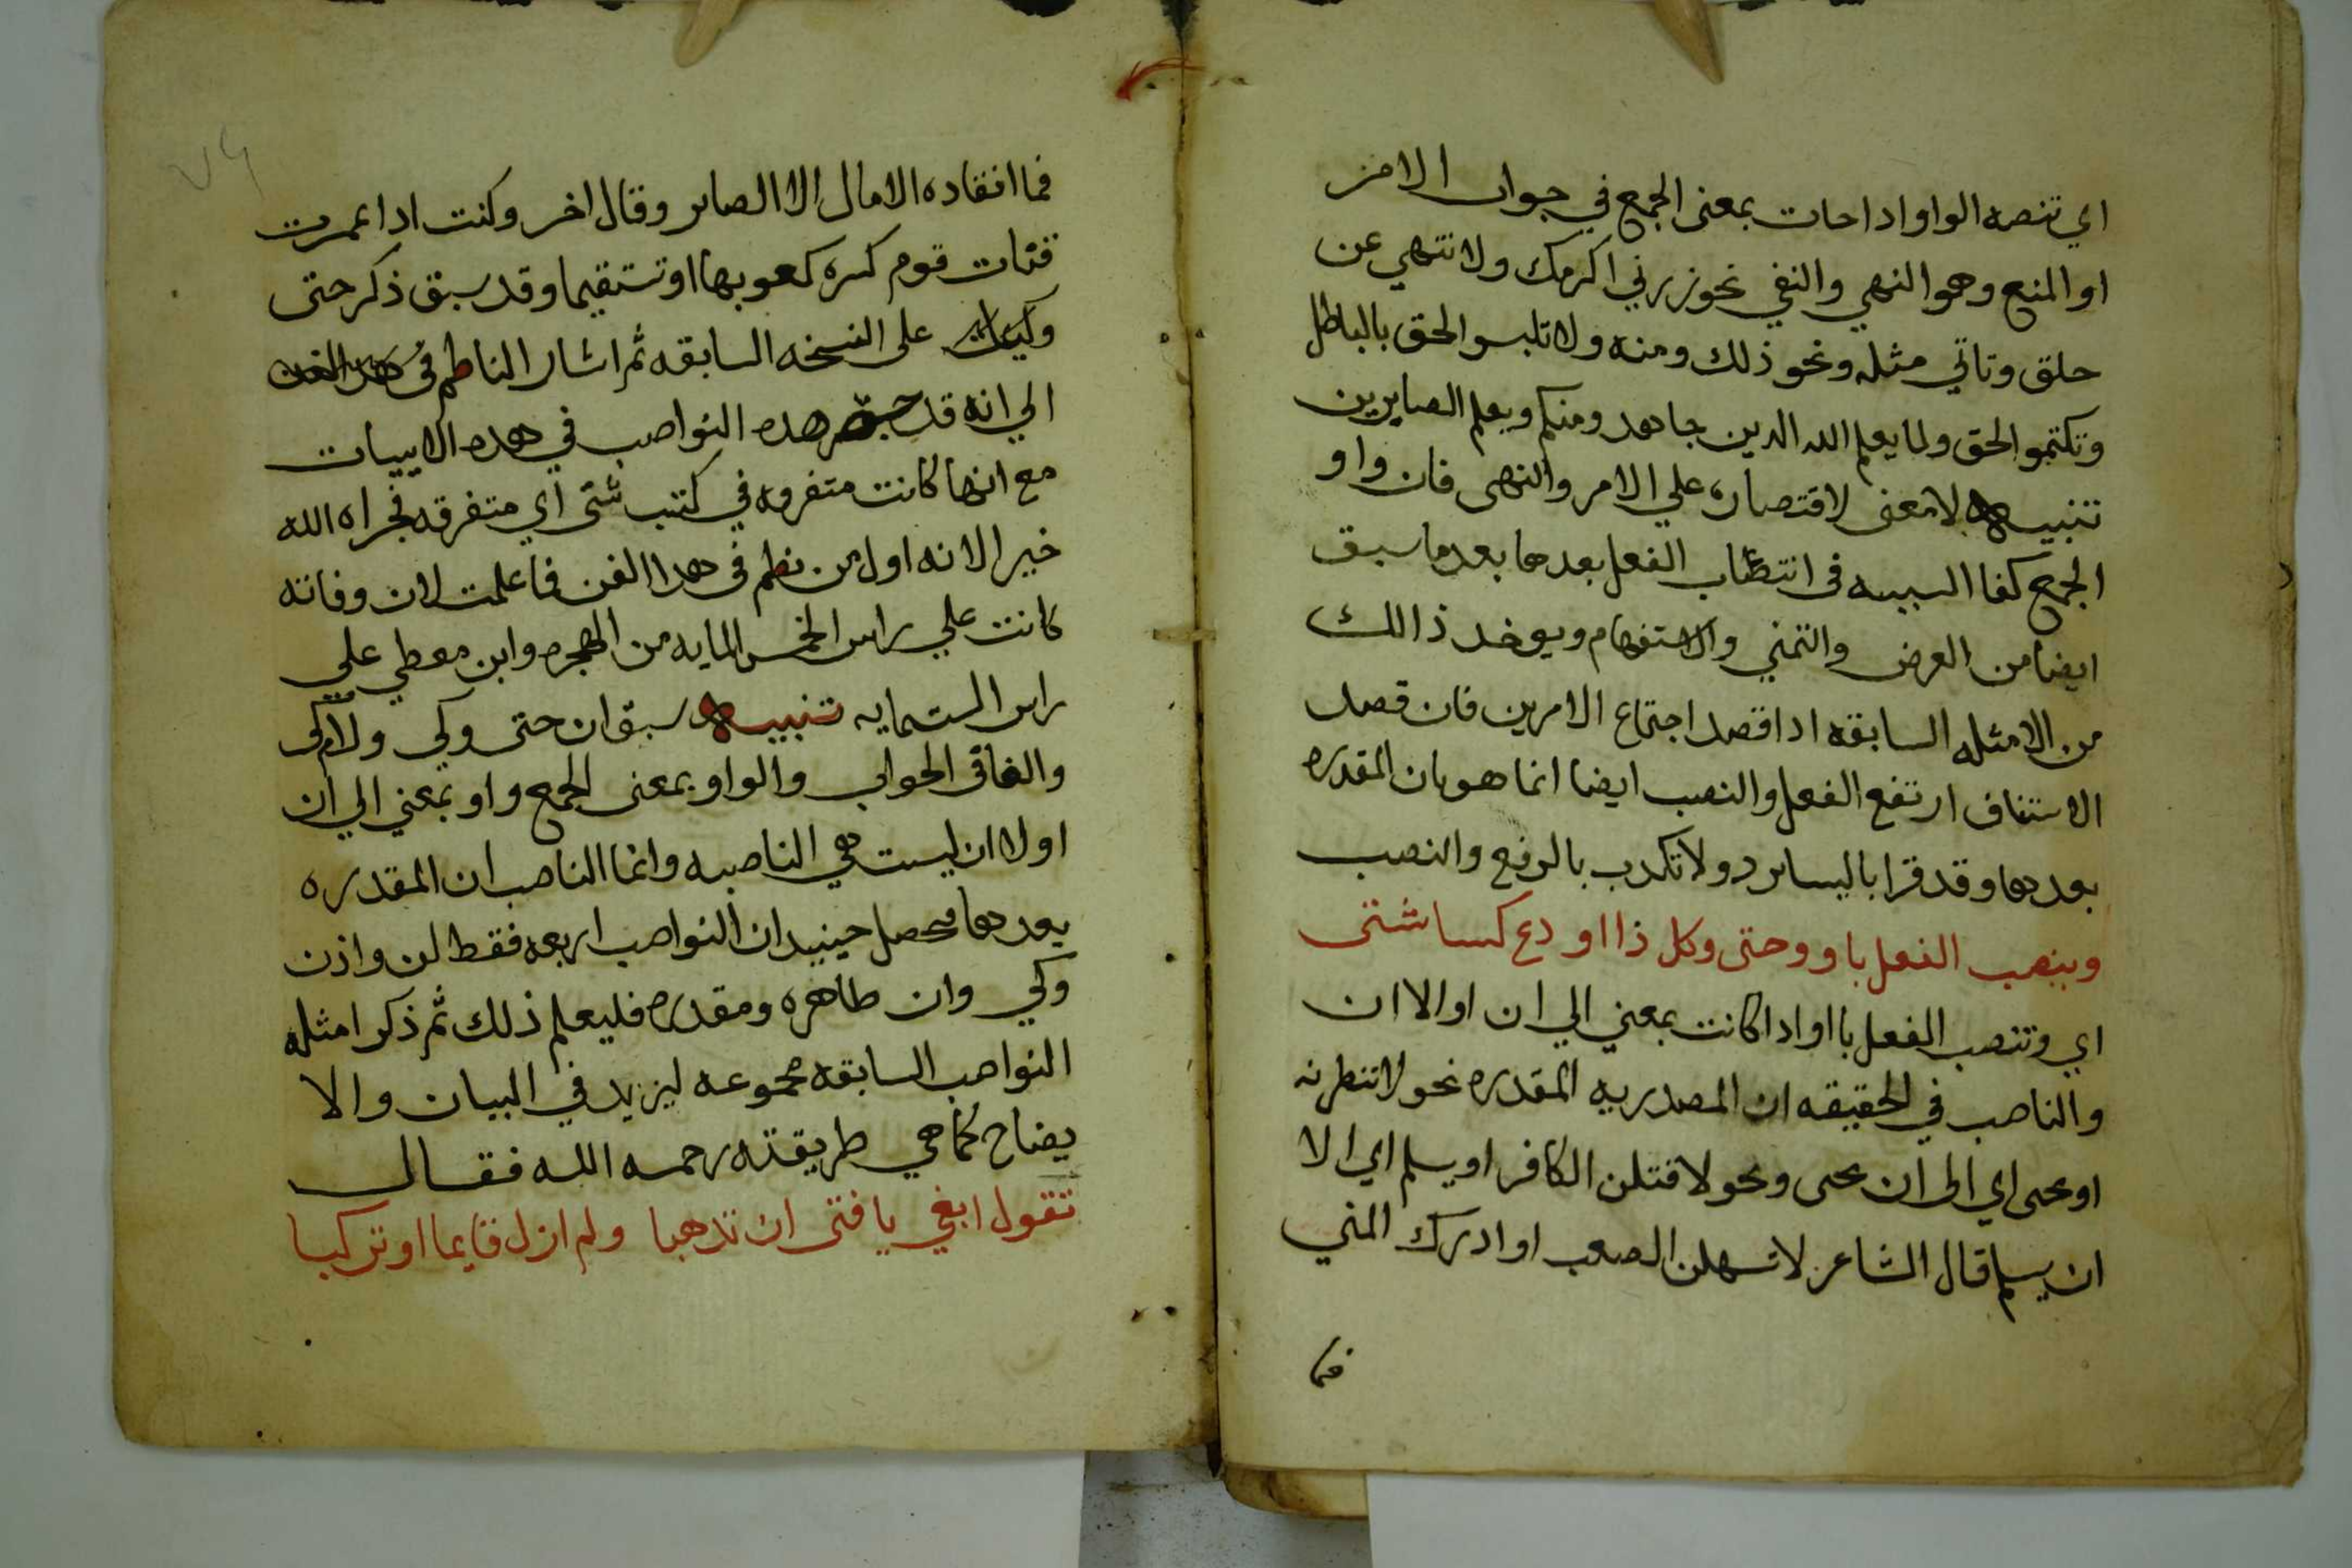 اي تنصبه الواو اداحات بمعنى الجمع في جواب الامر
او المنع وهو النهي والنفي نحو زرني اكرمك ولا تنتهي عن
خلق وتاتي مثله ونحو ذلك ومنه ولا تلبسو الحق بالباطل
وتكتمو الحق ولما يعلم الله الدين جاهدو منكم ويعلم الصابرين
تنبيه لا معنى لاقتصاره علي الامر والنهى فان واو
الجمع كفا السببيه فى انتصاب الفعل بعدها بعد ما سبق
ايضا من العرض والتمني والاستفهام ويوخد ذالك
من الامثله السابقه ادا قصد اجتماع الامرين فان قصد
الاستناف ارتفع الفعل والنصب ايضا انما هو بان المقدره
بعدها وقد قرا باليسا نرد ولا نكدب بالرفع والنصب
وينصب الفعل باو وحتى وكل ذا اودع كتبا شتى
اي وتنصب الفعل با او ادا كانت بمعني الي ان او الا ان
والناصب في الحقيقه ان المصدريه المقدره نحو لانتطرنه
او يحى اي الى ان يحى ونحو لاقتلن الكافر او يسلم اي الا
ان يسلم قال الشاعر لاستسهلن الصعب او ادرك المني
فما
فما انقاده الامال الا الصابر وقال اخر وكنت ادا غمزت
قنات قوم كسرة كعوبها او تستقيما وقد سبق ذكر حتى
على النسخه السابقه ثم اشار الناظم فى
الي انه قد هده النواصب في هده الابيات
مع انها كانت متفرقه في كتب شتى اي متفرقه فجزاه الله
خيرا لانه اول من نظم فى هدا الفن فما علمت لان وفاته
كانت علي راس الخمس المايه من الهجره وابن معطي علي
راس الستمايه تنبيه سبق ان حتى وكي ولام كى
والفا فى الجواب والواو بمعنى الجمع واو بمعني الي ان
او لا ان ليست هي الناصبه وانما الناصب ان المقدره
بعدها فتحصل حينيد ان النواصب اربعه فقط لن واذن
وكي وان ظاهره ومقدره فليعلم ذلك ثم ذكر امثله
النواصب السابقه مجموعه ليزيد في البيان والا
يضاح كما هي طريقته رحمه الله فقال
تقول ابغي يا فتى ان تدهبا ولم ازل قايما او تركبا